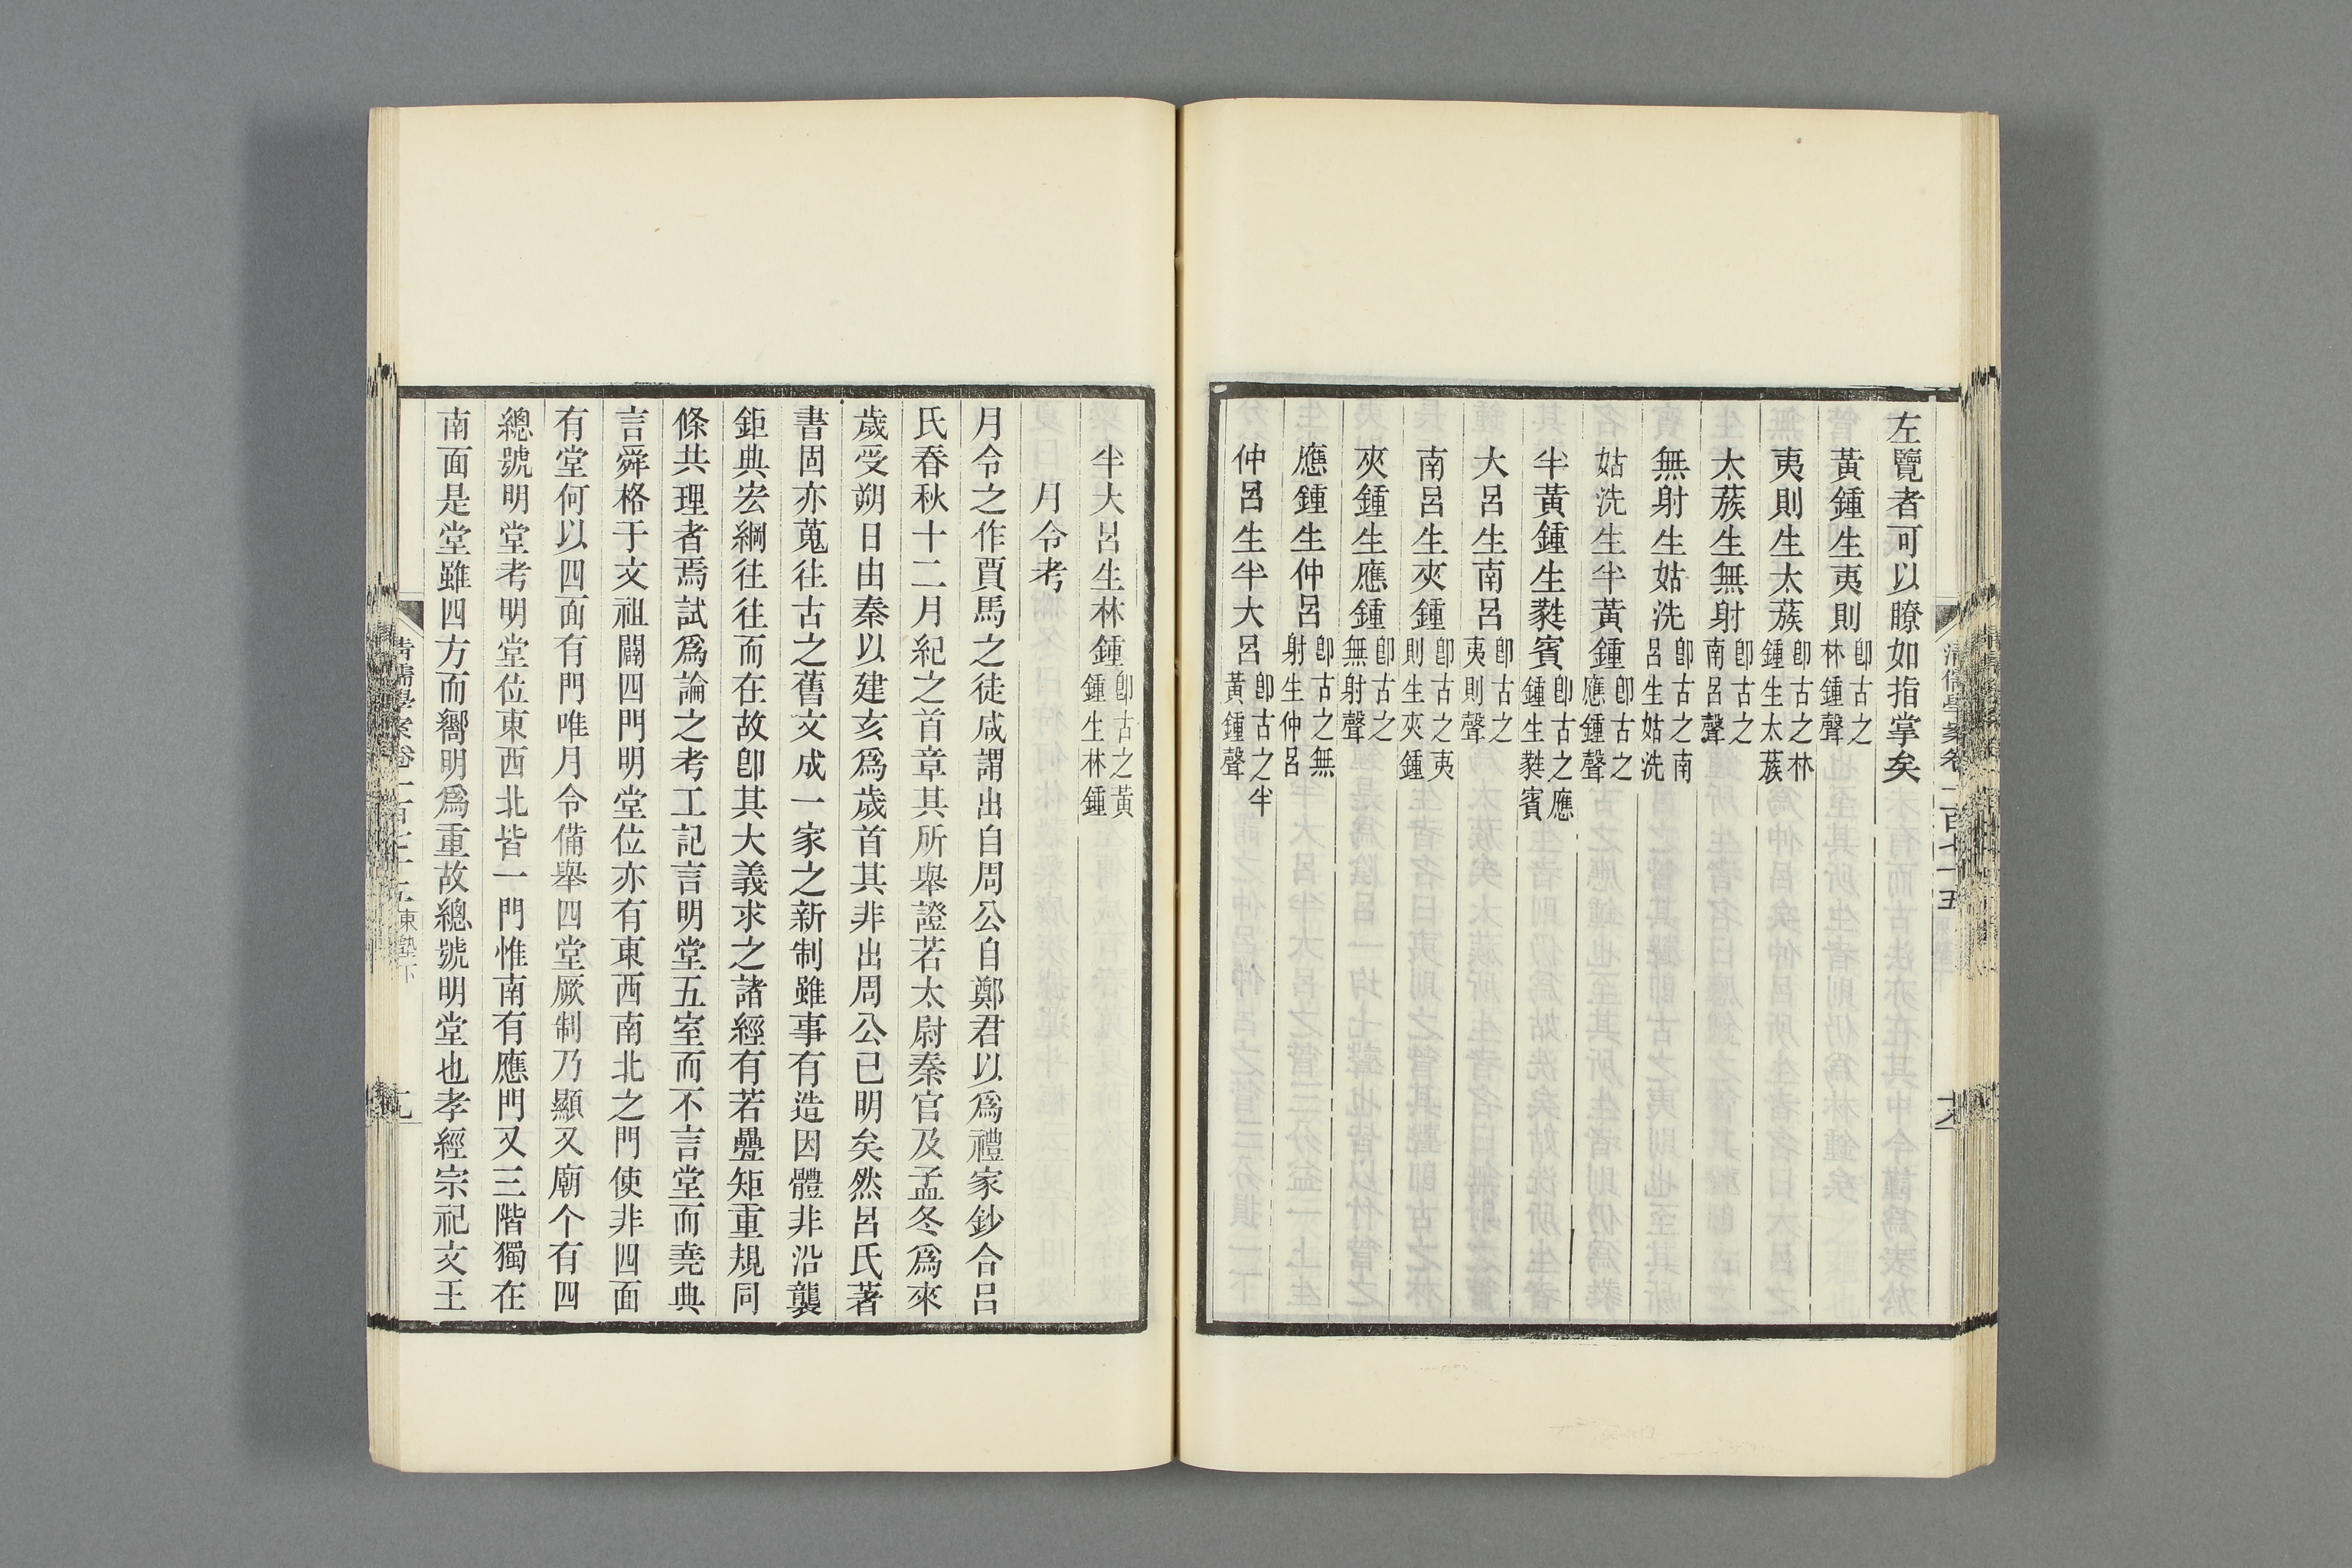 左覽者可以瞭如指掌矣
黃鍾生夷則卽古之林鍾聲
夷則生太蔟卽古之林鍾生太蔟
太蔟生無射卽古之南呂聲
無射生姑洗卽古之南呂生姑洗
姑洗生半黃鍾卽古之應鍾聲
半黃鍾生蕤賓卽古之應鍾生蕤賓
大呂生南呂卽古之夷則聲
南呂生夾鍾卽古之夷則生夾鍾
夾鍾生應鍾卽古之無射聲
應鍾生仲呂卽古之無射生仲呂
仲呂生半大呂卽古之半黃鍾聲
半大呂生林鍾卽古之黃鍾生林鍾
月令考
月令之作賈馬之徒咸謂出自周公自鄭君以爲禮家鈔合呂
氏春秋十二月紀之首章其所舉證若太尉秦官及孟冬爲來
歲受朔日由秦以建亥爲歲首其非出周公已明矣然呂氏著
書固亦蒐往古之舊文成一家之新制雖事有造因體非沿襲
鉅典宏綱往往而在故卽其大義求之諸經有若疊矩重規同
條共理者焉試爲論之考工記言明堂五室而不言堂而堯典
言舜格于文祖闢四門明堂位亦有東西南北之門使非四面
有堂何以四面有門唯月令備舉四堂厥制乃顯又廟个有四
總號明堂考明堂位東西北皆一門惟南有應門又三階獨在
南面是堂雖四方而嚮明爲重故總號明堂也孝經宗祀文王